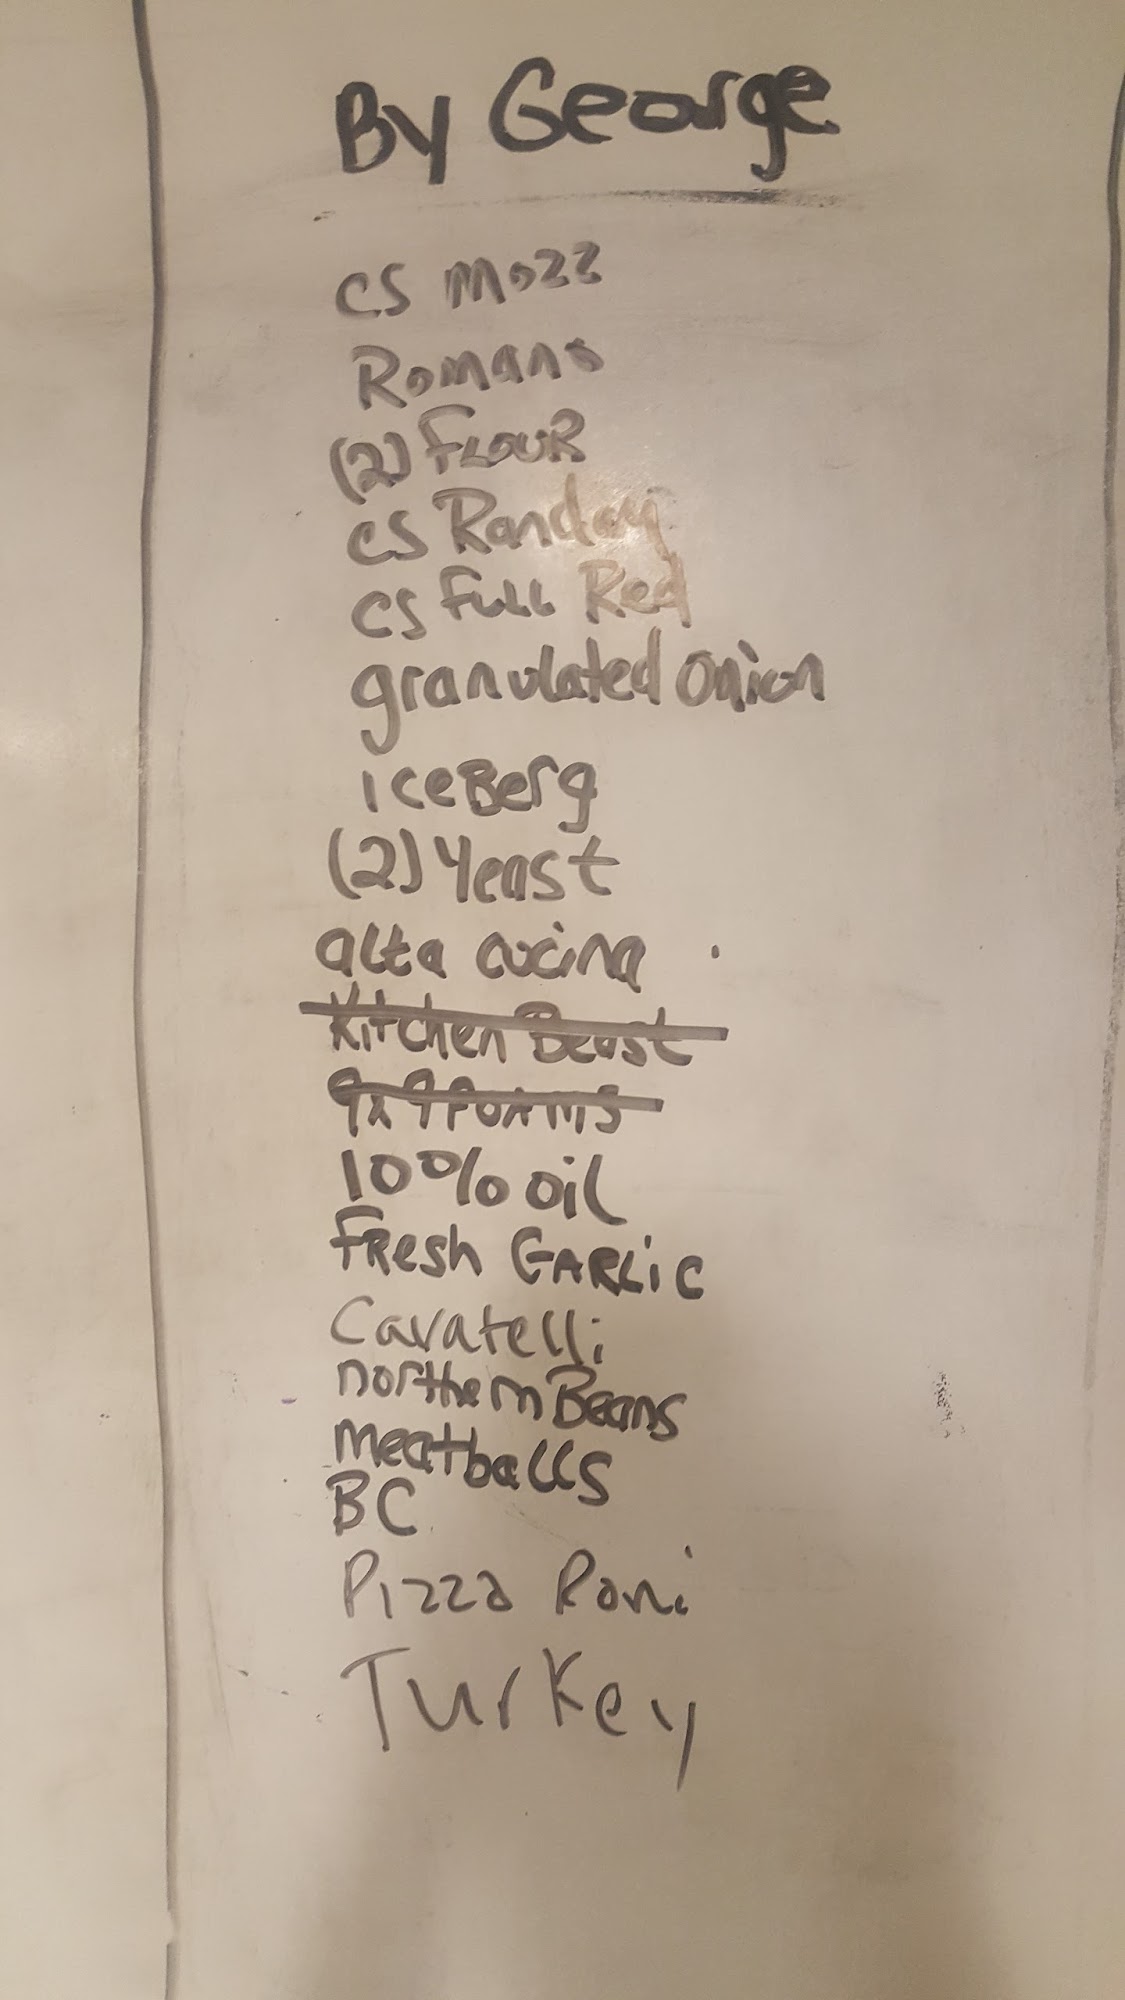 By George
CS Mozz
Romano
(2) FLOUR
CS Randag
CS Full Red
granulated onion
iceBerg
(2) Yeast
alta cucina
Kitchen Beast
9x9 FOAMS
100% oil
FResh GARLiC
Cavatelli
northern Beans
meatballs
BC
Pizza Roni
Turkey